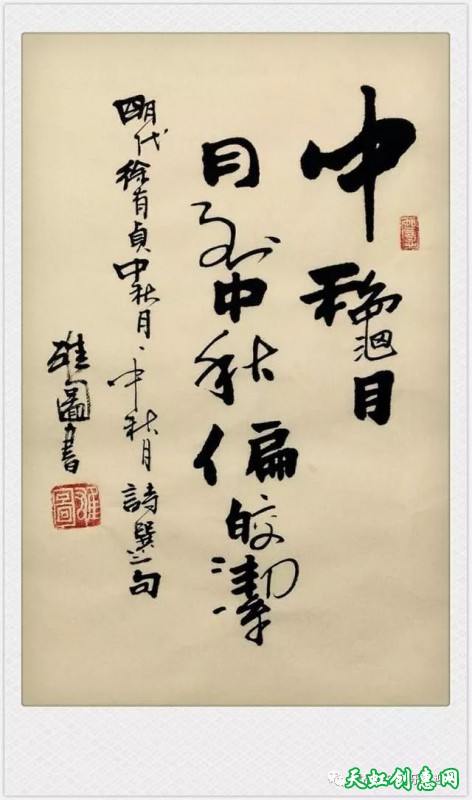 中龝月
月到中秋偏皎潔
明代徐有貞中秋月、中秋月詩選二句
雄圖書
雄圖
天虹创意网